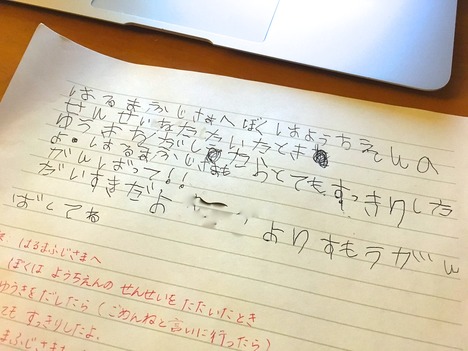 はるまふじさまへ ぼく はようちえんの
せんせいをたたいたとき
ゆうきをだしたらとても、すっきりした
よ。はるまふじさまも
がんばって!!
だいすきだよ よりすもうがん
ばってね
はるまふじさまへ
ぼくは ようちえんの せんせいを たたいたとき
ゆうきをだしたら(ごめんねと言いに行ったら)
ても すっきりしたよ.
まふじさま